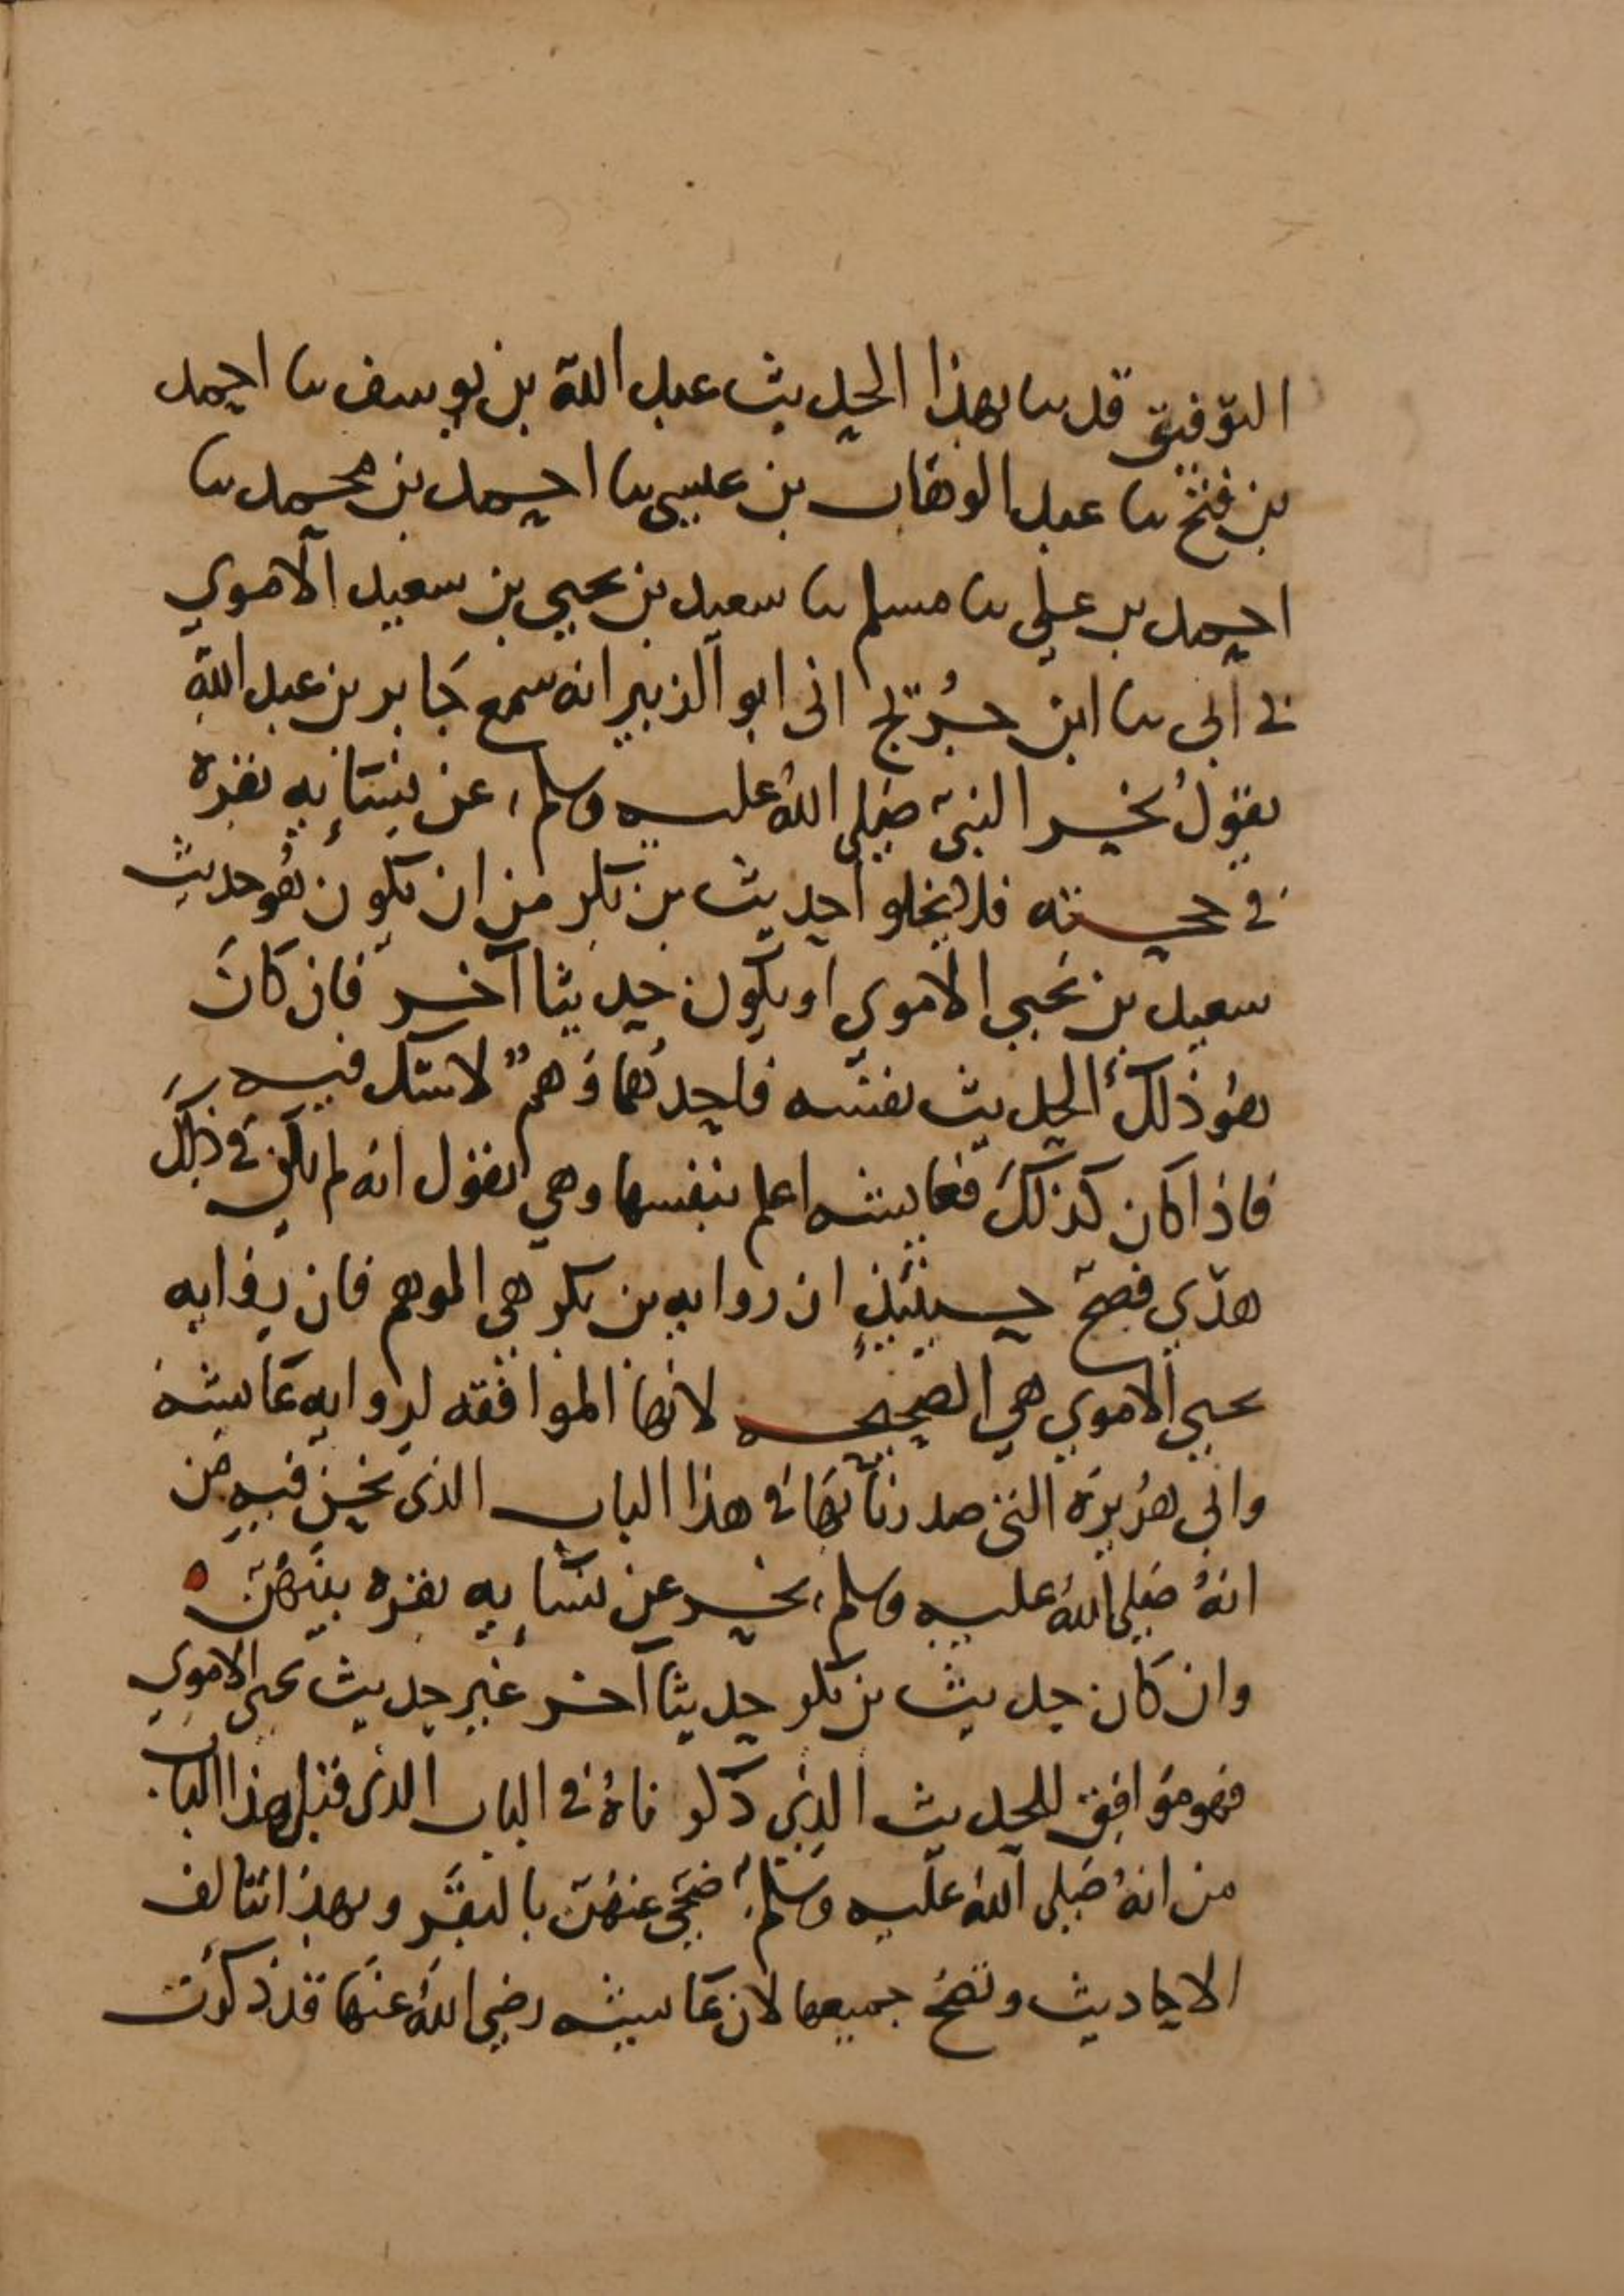 التوفيق قد نا بهذا الحديث عبد الله بن يوسف نا احمد
بن فتح نا عبد الوهاب بن عيسى نا احمد بن محمد نا
احمد بن علي نا مسلم نا سعيد بن يحيى بن سعيد الاموي
ني ابي نا ابن جُريج اني ابو الزبير انه سمع جَابر بن عبد الله
يقولُ نحر النبيّ صَلى اللهُ عليه وسلم عن نسَائِه بقرة
في حجته فلا يخلو حديث بن بكر من ان يكون هُو حديث
سعيد بن يَحيى الاموي او يكون حديثا آخر فان كانَ
هُو ذلكَ الحديث نفسه فاحدهُما وَهمٌ لا شك فيه
فاذا كان كذلكَ فعايشه اعلم بنفسها وهي تقول انه لم يكن في ذلكَ
هدْي فصحّ حينئِذٍ ان روايه بن بكر هي الموهم فان روايه
يحيى الاموي هي الصحيحه لانها الموافقه لروايه عَايشة
وابي هُريرَة التي صدرنا بهَا في هذا الباب الذي نحن فيه من
انهُ صَلى اللهُ عليه وسلم نحر عن نسَايِه بقره بينهُنّ
وان كان حديث بن بكر حديثا آخر غير حديث يحيى الاموي
فهو مَوافِق للحديث الذِي ذكرناهُ في الباب الذى قبل هذا الباب
من انهُ صَلى اللهُ علَيه وَسَلم ضَحّى عنهُنّ بالبقَر وبهذا تتالف
الاحاديث وتصحُ جميعها لان عَايشه رضي اللهُ عنهَا قد ذكرَت